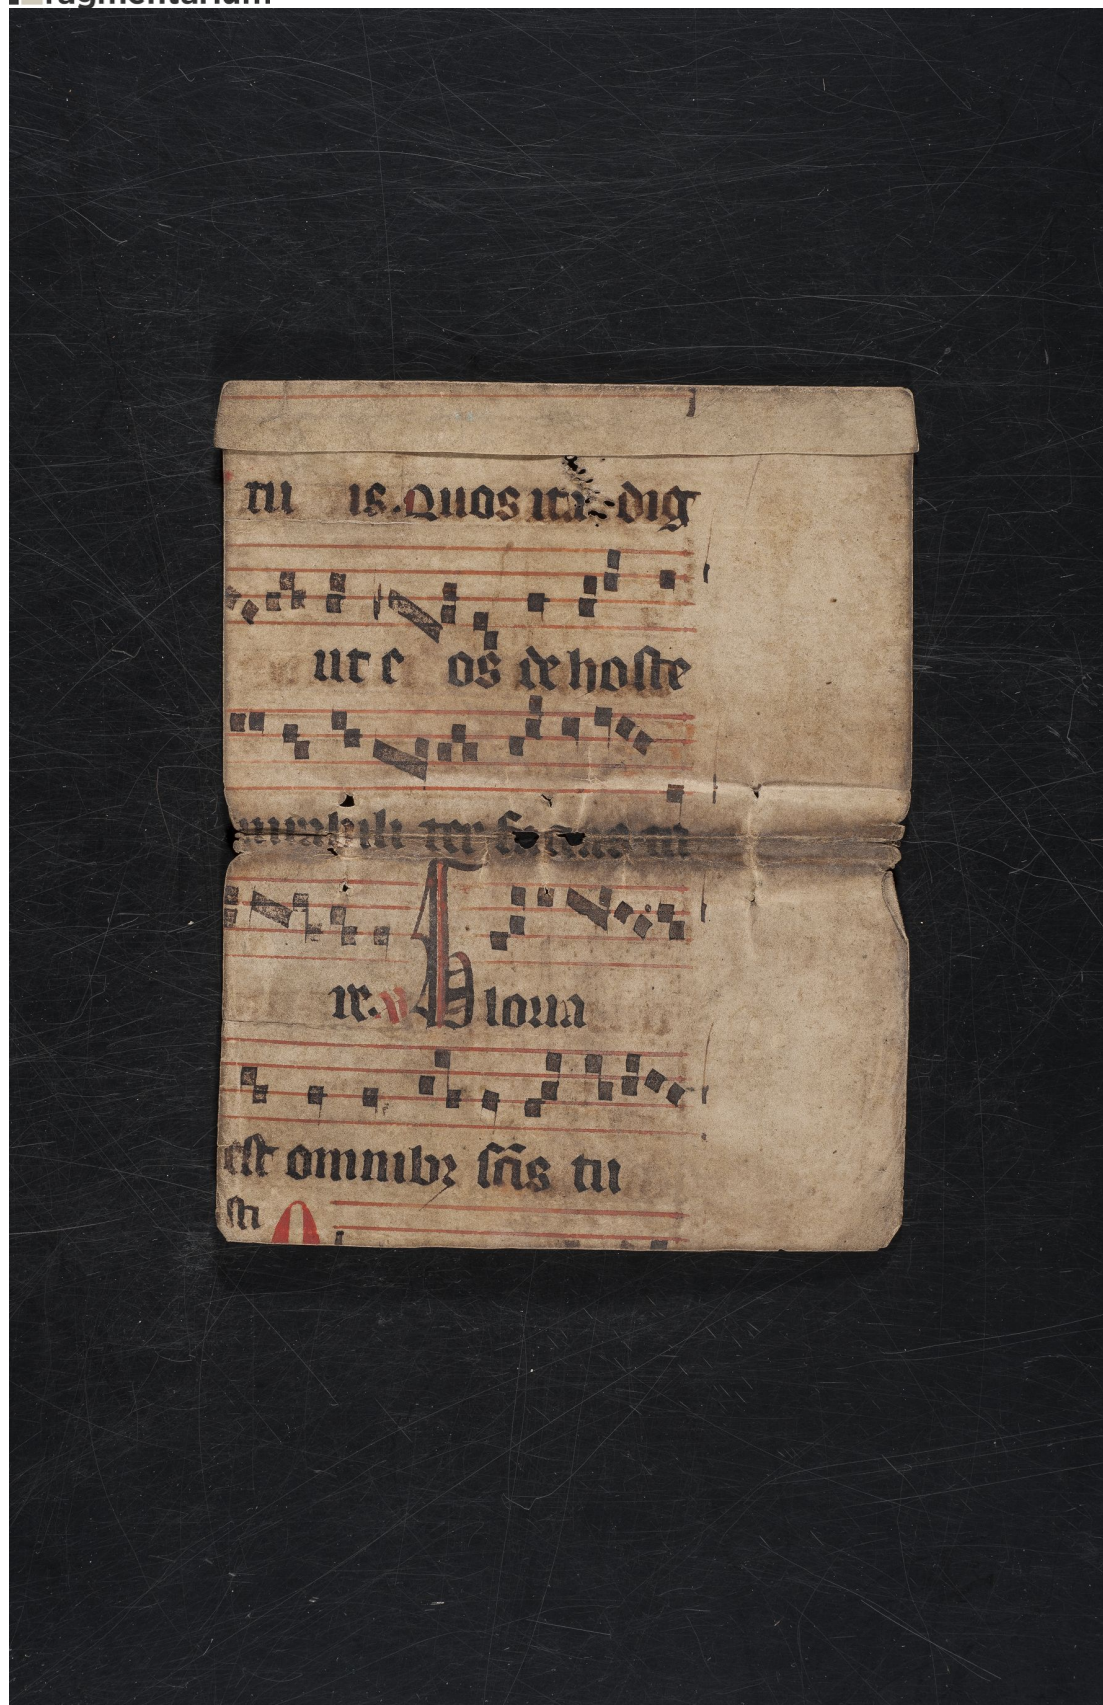 fragmentarium
tu is. Quos ita dig
ut e os de hoste
mirabiliter facias tri
re. v Gloria
est omnibꝫ sc̄is tu
sti